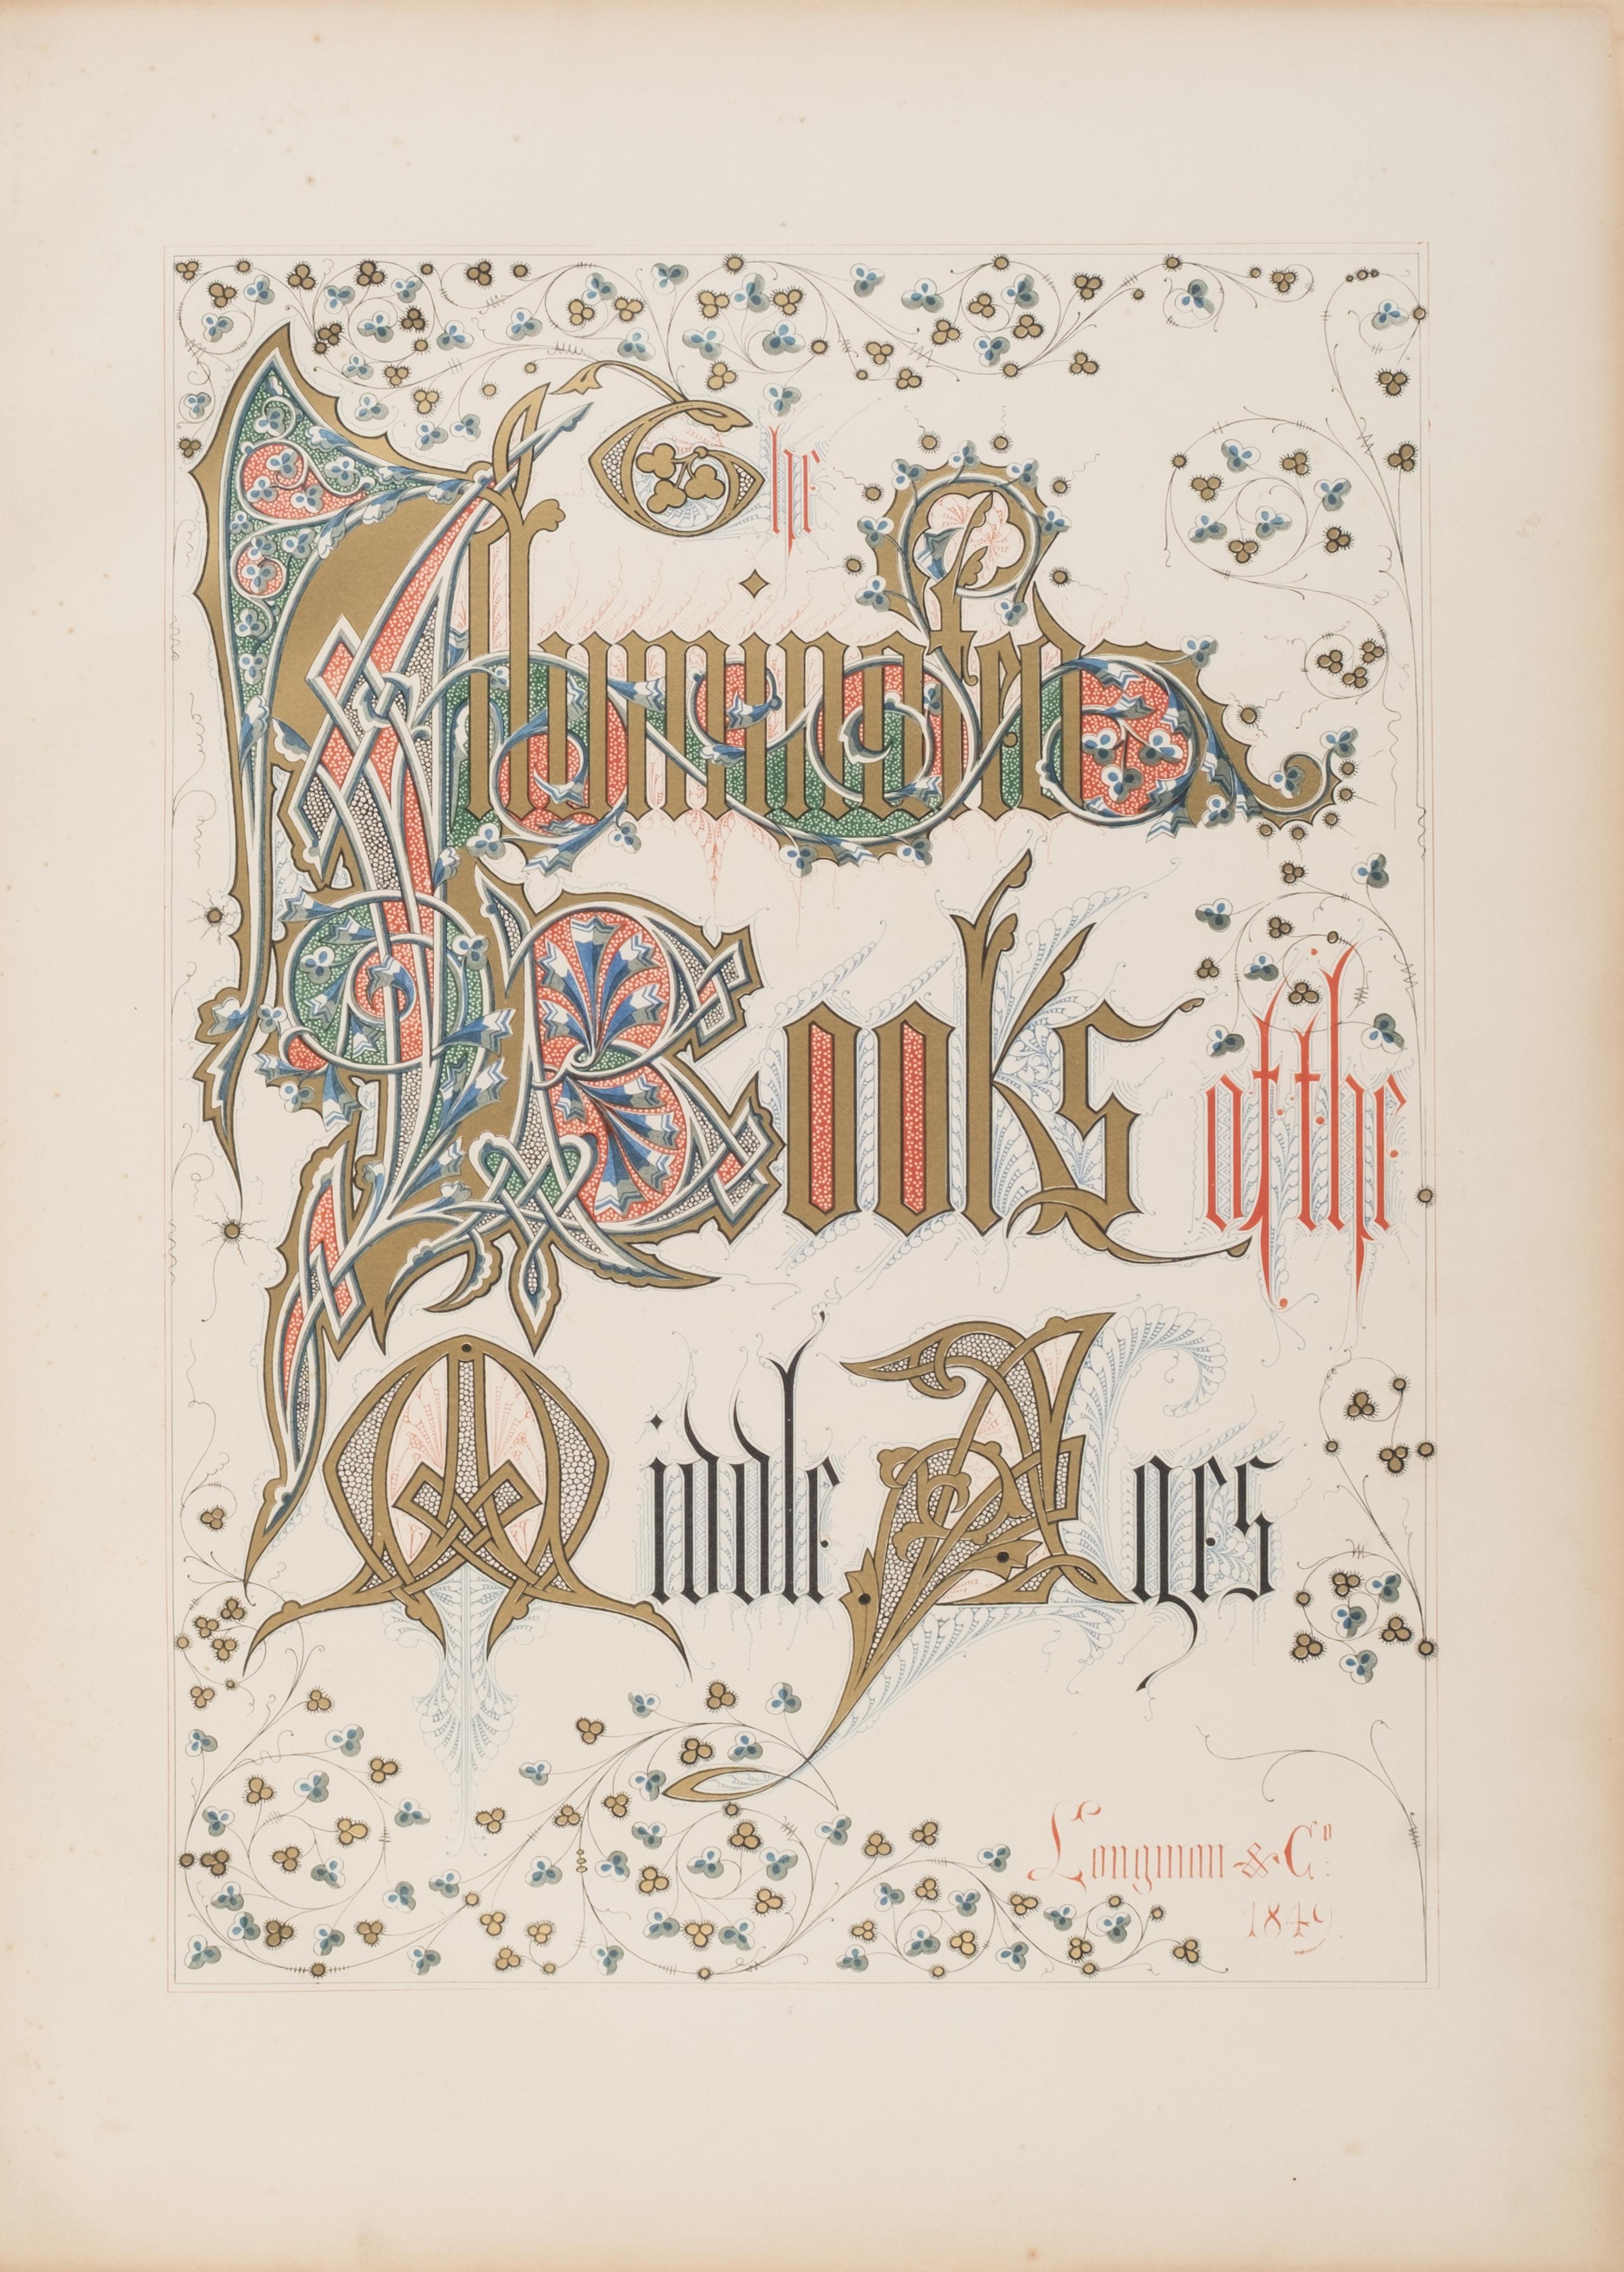 The
Illuminated
Books of the
Middle Ages
Longman & Co.
1849.